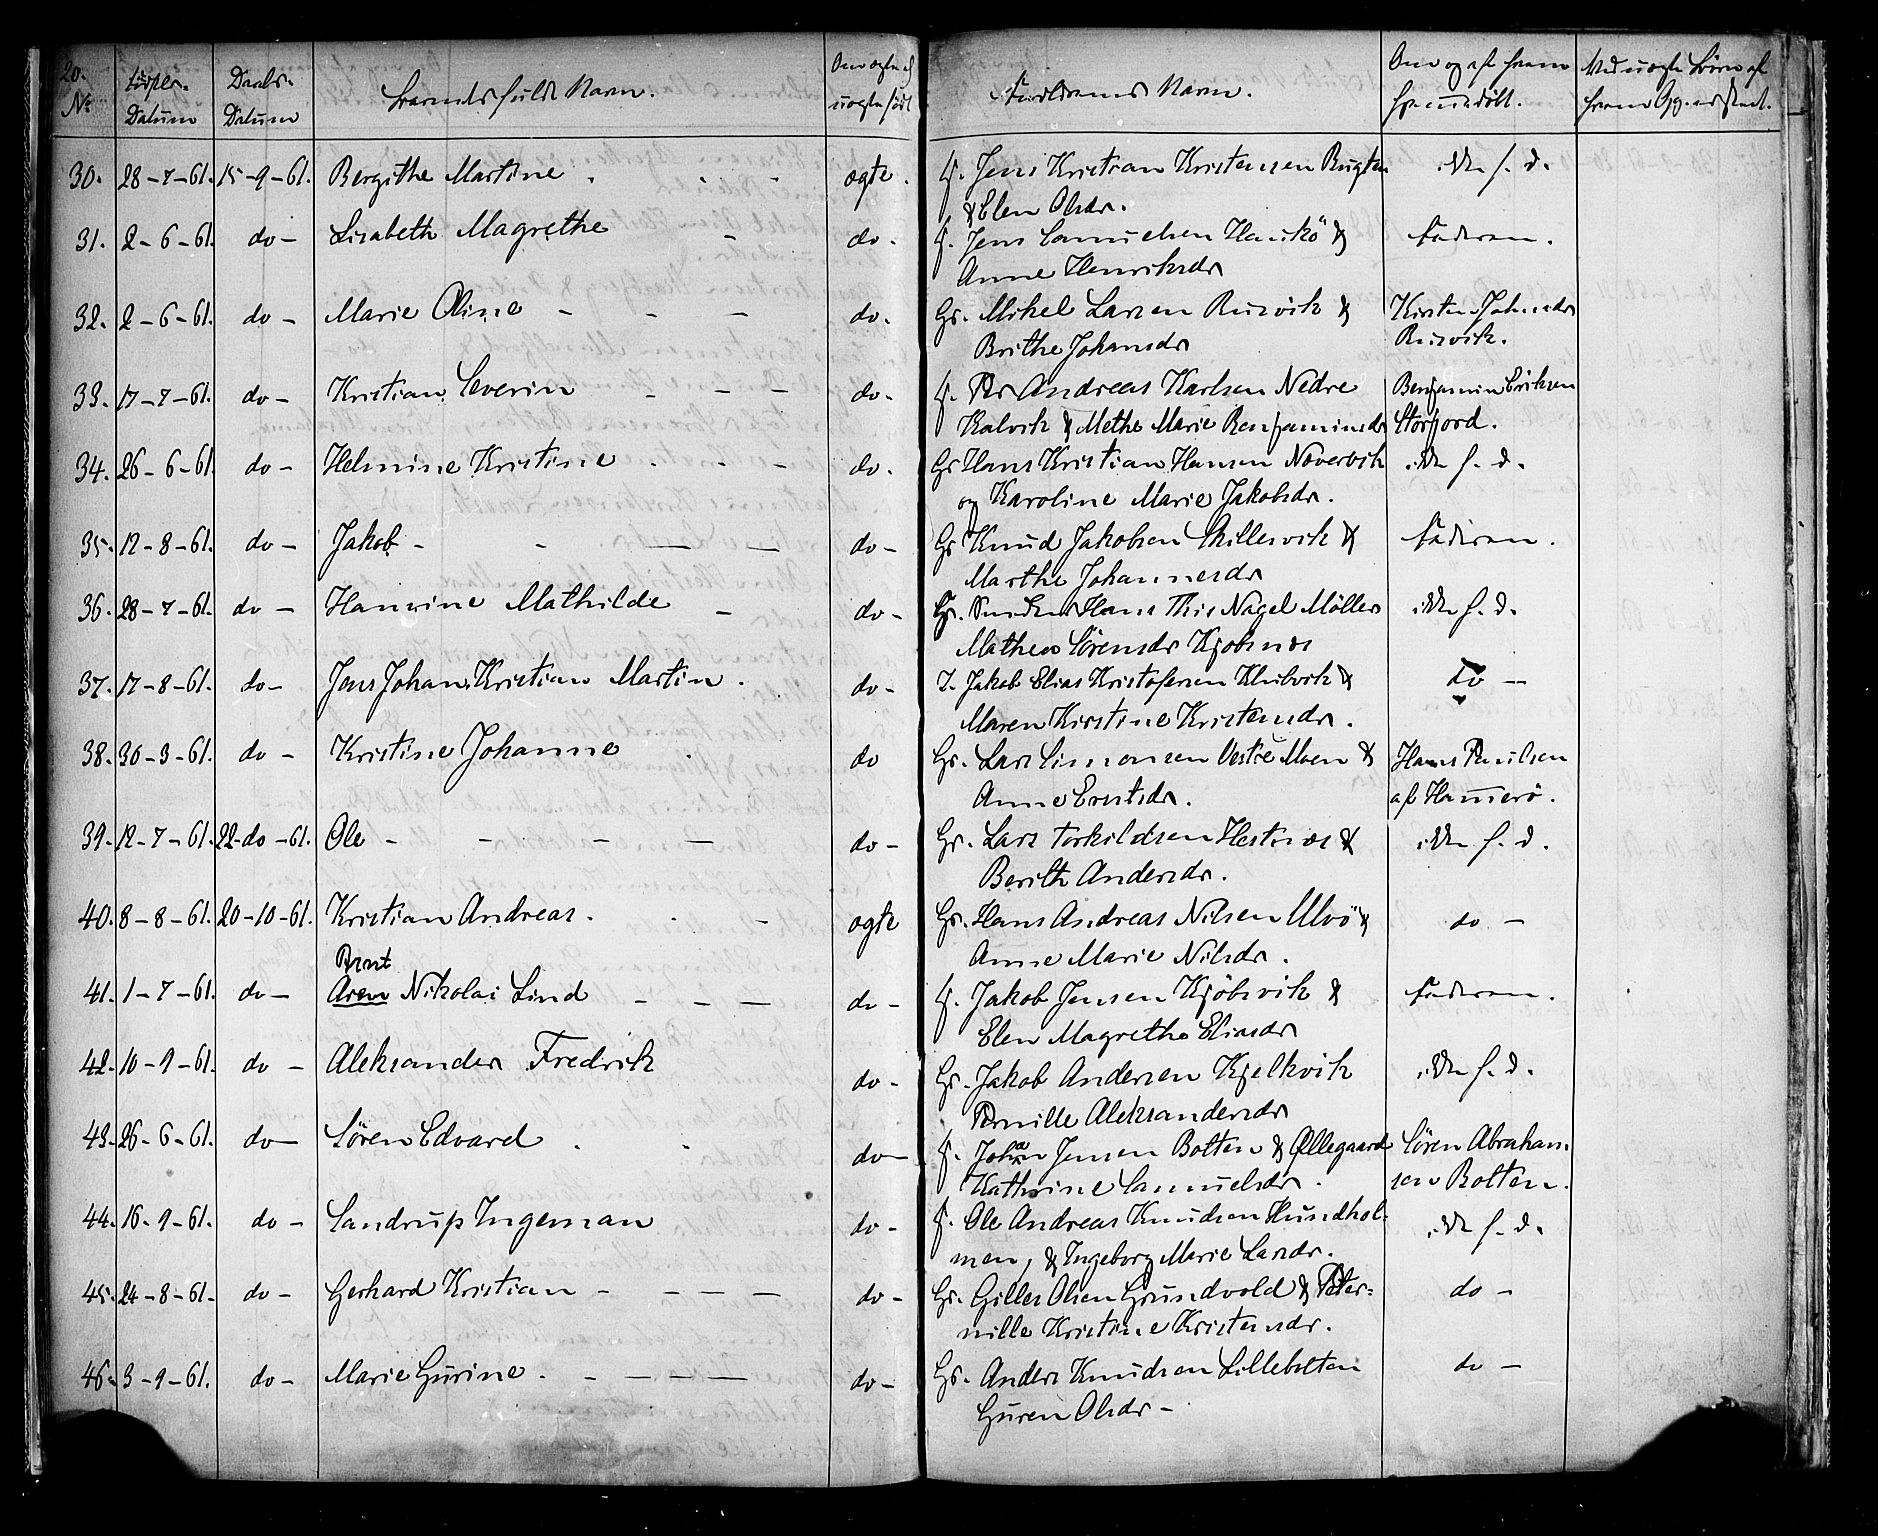 20.
No Fødsels- Daabs- Barnets fulde Navn. Om ægte el Forældrenes Navn. Om og af hvem Ved uægte Børn af
Datum Datum uægte født hjemmedøbt. hvem Opg. er skeet.
30. 28-7-61. 15-9-61. Bergithe Martine ægte. Jens Kristian Kristensen ikke h. d.
& Elen Olsdr.
31. 2-6-61. do- Lisabeth Magrethe - do. Jens Samuelsen Haukö & Faderen.
Anne Henriksdr
32. 2-6-61. do- Marie Oline - - - do. Gr. Mikel Larsen Rusvik & Kirsten Johnsdr
Brithe Johansdr Rusvik.
33. 17-7-61. do- Kristian Severin - - - do. Per Andreas Karlsen Nedre Benjamin Eriksen
Kalvik & Methe Marie Benjaminsdr Storfjord.
34. 26-6-61. do- Helmine Kristine do. Gr Hans Kristian Hansen Novervik ikke h. d.
og Karoline Marie Jakobsdr.
35. 12-8-61. do- Jakob - - - - do- Gr Knud Jakobsen & Faderen.
Marthe Johannesdr
36. 28-7-61. do- Hansine Mathilde - do- Gr. Hans This Nagel Möller ikke h. d.
Mathea Sörensdr Kjobsnæs
37. 17-8-61. do- Jens Johan Kristian Martin. do- I. Jakob Elias Kristofersen &  do -
Maren Kirstine Kristensdr.
38. 30-3-61. do- Kristine Johanne do Gr. Lars Simonsen Vestre Moen & Hans Paulsen
Anne Erntsdr. af Hamerö.
39. 12-7-61. 22-do-61. Ole - - - - do- Gr. Lars Torkildsen Hestnæs & ikke h. d.
Berith Andersdr.
40. 8-8-61. 20-10-61. Kristian Andreas. - ægte Gr. Hans Andreas Nilsen Ulvö & do -
Anne Marie Nilsdr.
Bernt
41. 1-7-61. do- Aren Nikolai Lind - - - do- Jakob Jensen Kjöbsvik & Faderen.
Elen Magrethe Eliasdr
42. 10-9-61. do- Aleksander Fredrik do- Gr. Jakob Andersen Kjelkvik ikke h. d.
Pernille Aleksandersdr
43. 26-6-61. do- Sören Edvard do- Johan Jensen Botten & Ollegaard Sören Abraham
Kathrine Samuelsdr. sen Botten.
44. 16-9-61. do- Sandrup Ingeman do- Ole Andreas Knudsen Hundhol- ikke h. d.
men, & Ingeborg Marie Larsdr.
45. 24-8-61. do- Gerhard Kristian - - - - do- Gr. Gilles Olsen Grundvold & Peter= do -
nille Kristine Kristensdr.
46. 3-9-61. do- Marie Gurine. - - - - do- Gr. Anders Knudsen Lillebotten do -
Guren Olsdr -